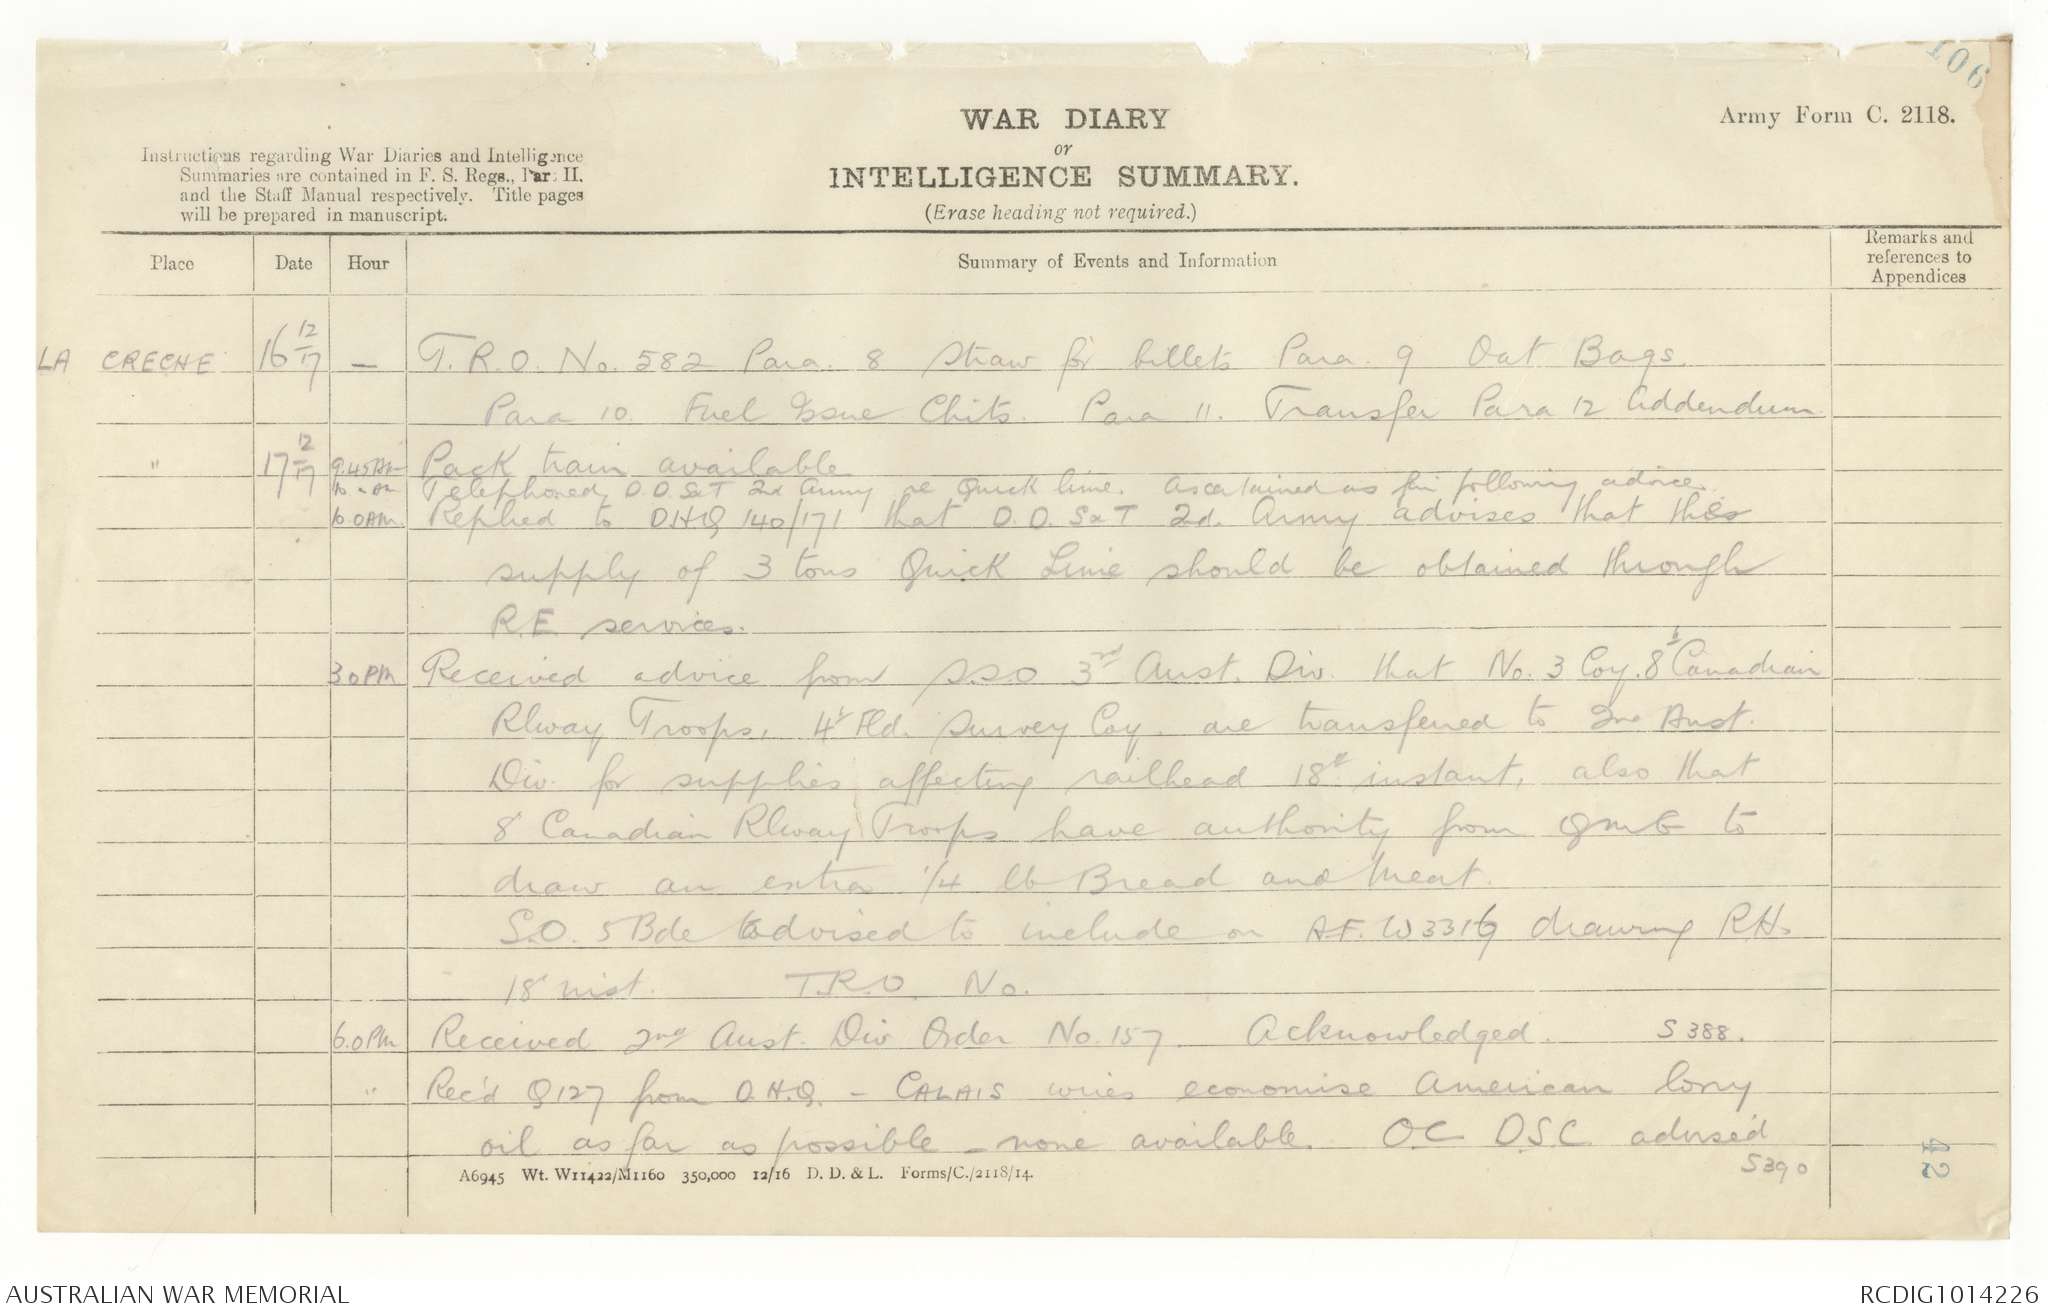 106
Army Form C. 2118.
WAR DIARY
or
INTELLIGENCE SUMMARY.
(Erase heading not required.)
Instructions regarding War Diaries and Intelligence
Summaries are contained in F. S. Regs., Part II.
and the Staff Manual respectively. Title pages
will be prepared in manuscript.
Place Date Hour Summary of Events and Information Remarks and references to Appendices
LA CRECHE 16 12/17 — T.R.O. No. 582 Para. 8 Straw for billets Para. 9 Oat Bags.
Para 10. Fuel Issue Chits. Para 11. Transfer Para 12 Addendum
" 17 12/17 9.45 AM Pack train available
10 - AM Telephoned D.D.S&T 2nd Army re Quick lime. Ascertained as per following advice.
10.0 AM. Replied to DHQ 140/171 that D.D.S&T 2nd. Army advises that this
supply of 3 tons Quick Lime should be obtained through
R.E. services.
3.0 PM Received advice from S.S.O 3rd Aust. Div. that No. 3 Coy. 8th Canadian
Rlway Troops, 4th Fld. Survey Coy. are transferred to 2nd Aust.
Div. for supplies affecting railhead 18th instant, also that
8th Canadian Rlway Troops have authority from QMG to
draw an extra 1/4 lb Bread and Meat.
S.O. 5 Bde advised to include on A.F. W3316 drawing R.H.
18th inst. T.R.O. No.
6.0 PM Received 2nd Aust. Div Order No. 157. Acknowledged. S 388.
" Rec'd Q127 from D.H.Q. – CALAIS wires economise American lorry
oil as far as possible – none available. OC DSC advised
S390
42
A6945 Wt. W11422/M1160 350,000 12/16 D. D. & L. Forms/C./2118/14.
AUSTRALIAN WAR MEMORIAL
RCDIG1014226